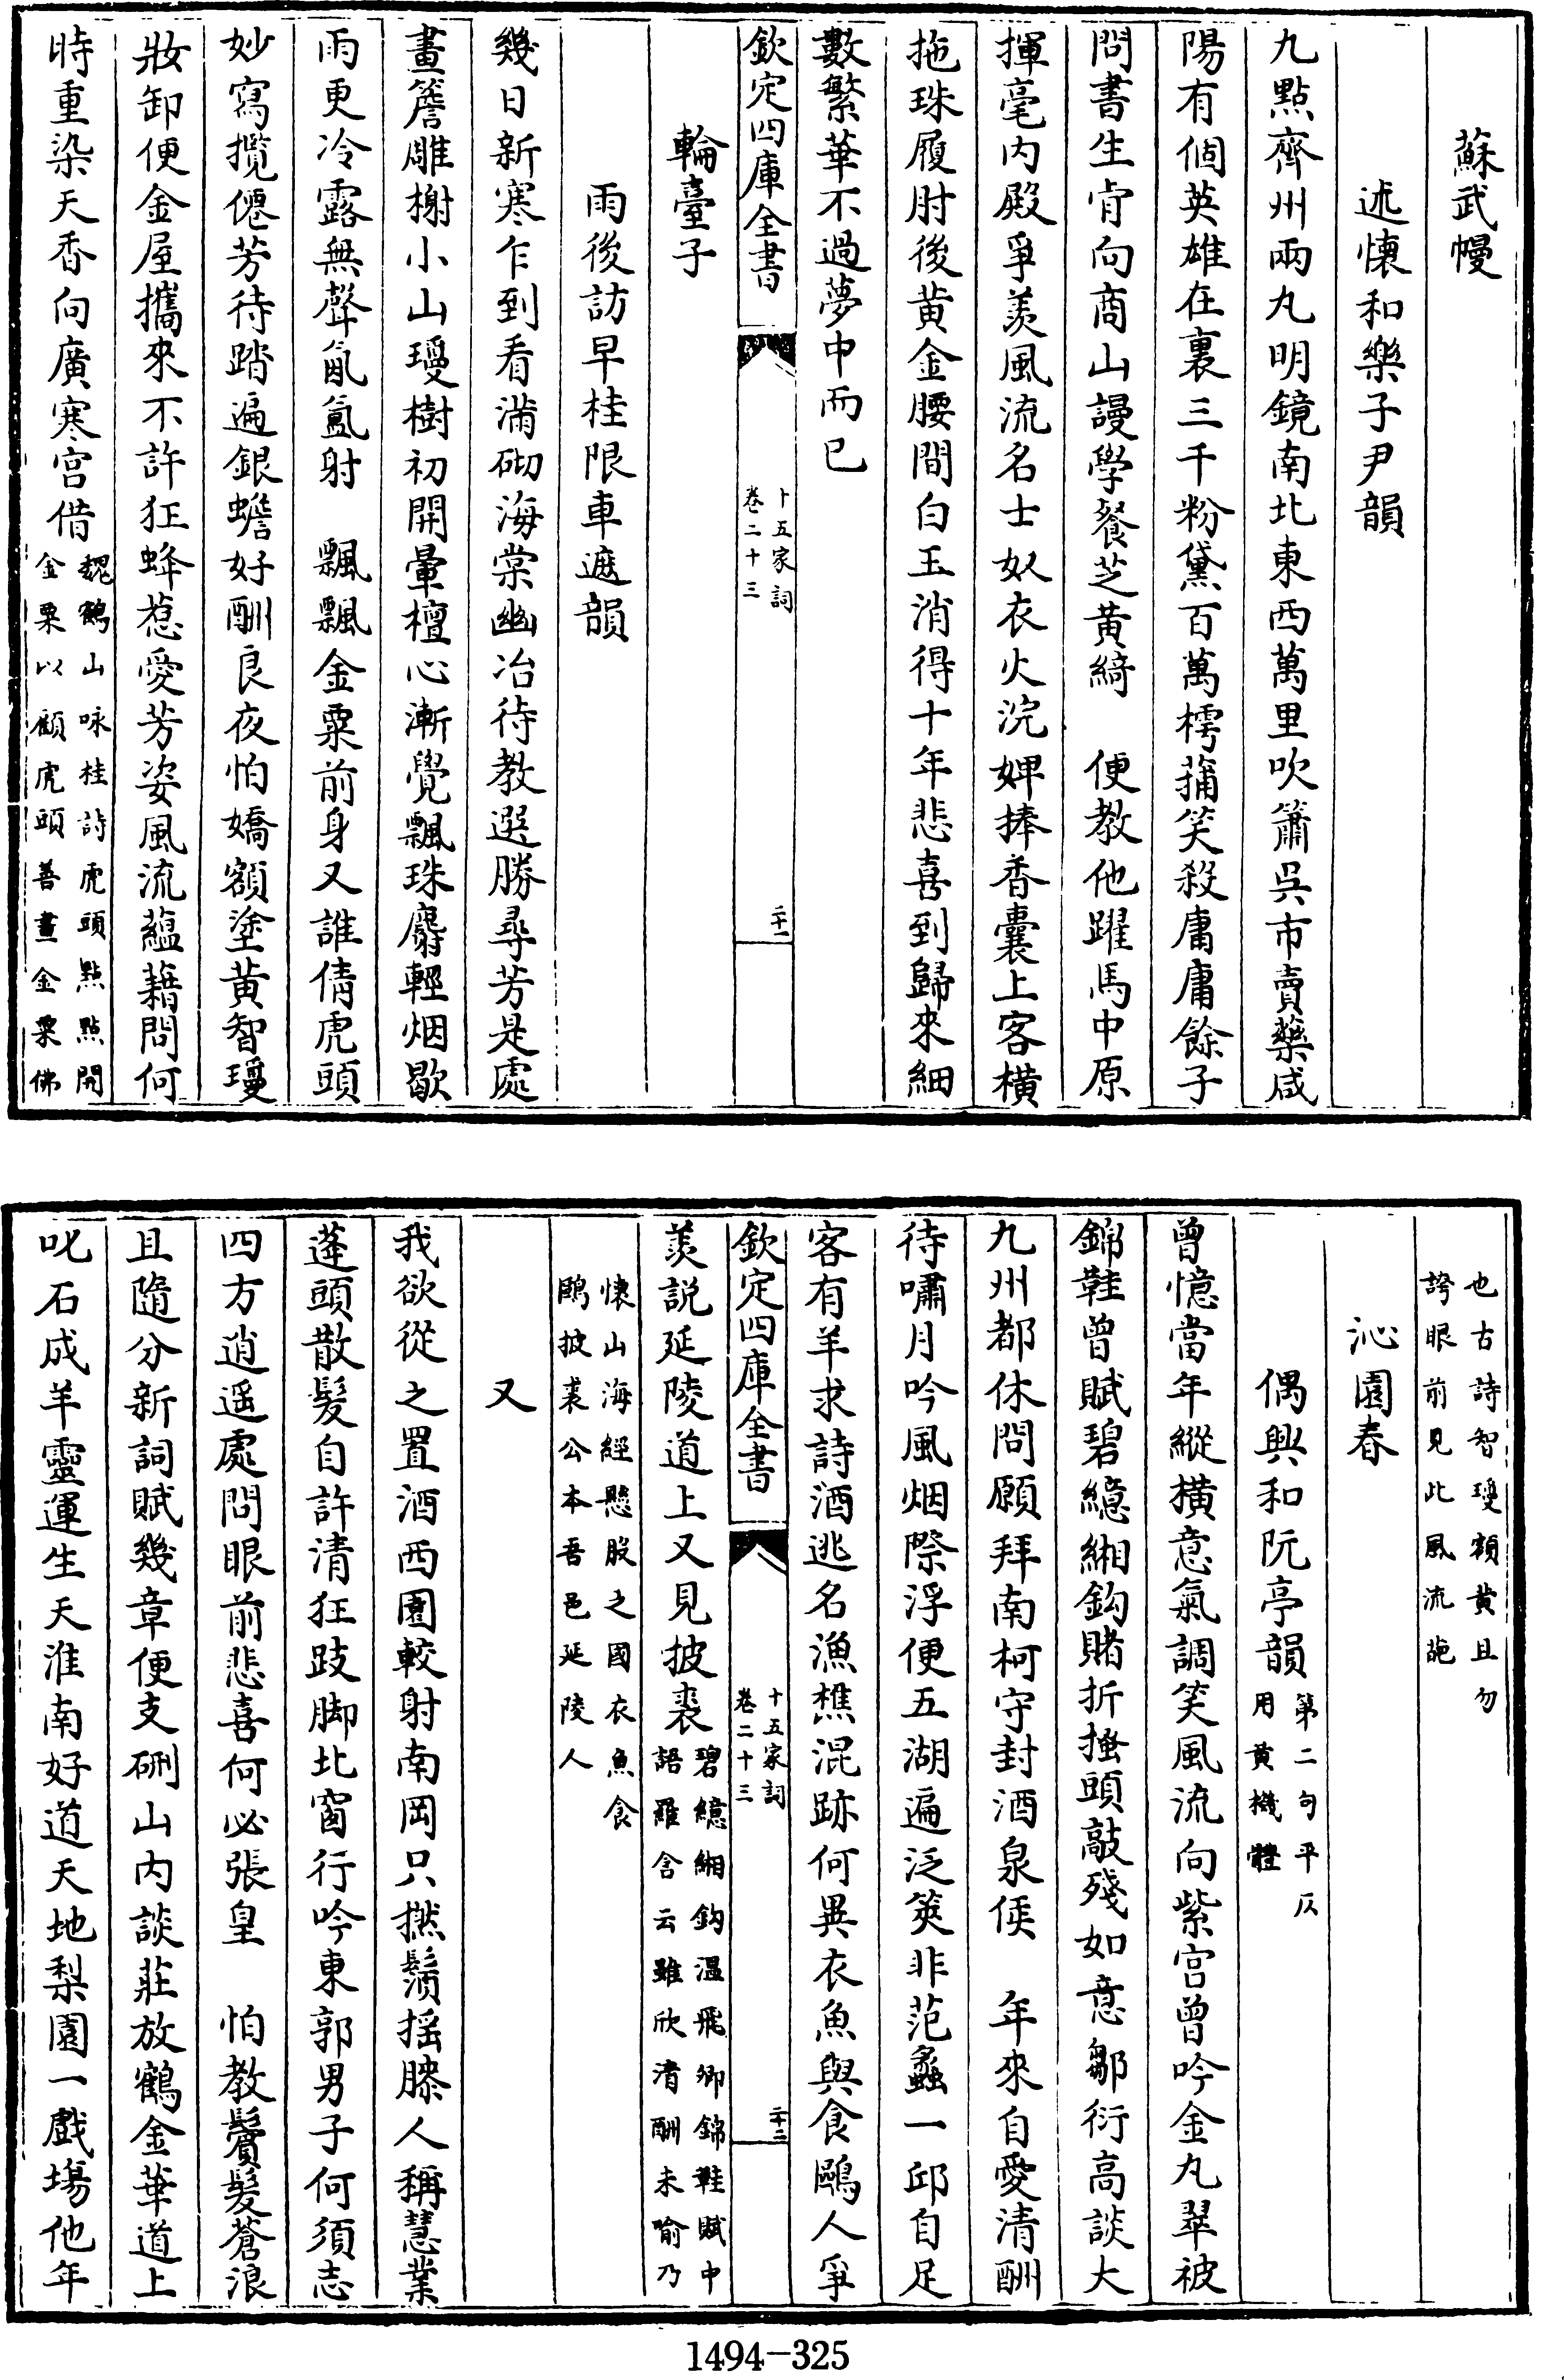 蘇武幔
述懷和樂子尹韻
九點齊州兩丸明鏡南北東西萬里吹簫呉市賣藥咸
陽有個英雄在裏三千粉黛百萬樗蒱笑殺庸庸餘子
問書生肯向商山謾學餐芝黄綺　便教他躍馬中原
揮毫内殿爭羨風流名士奴衣火浣婢捧香囊上客橫
拖珠履肘後黄金腰間白玉消得十年悲喜到歸來細
數繁華不過夢中而已
欽定四庫全書
十五家詞
卷二十三
二十一
輪臺子
雨後訪早桂限車遮韻
幾日新寒乍到看滿砌海棠幽冶待教選勝尋芳是處
畫簷雕榭小山瓊樹初開暈檀心漸覺飄珠麝輕烟歇
雨更冷露無聲氤氲射　飄飄金粟前身又誰倩虎頭
妙寫攬僊芳待踏遍銀蟾好酬良夜怕嬌額塗黄智瓊
妝卸便金屋攜來不許狂蜂惹愛芳姿風流蘊藉問何
時重染天香向廣寒宫借
魏鶴山咏桂詩虎頭點點開
金粟以顧虎頭善畫金粟佛
也古詩智瓊額黄且勿
誇眼前見此風流葩
沁園春
偶興和阮亭韻
第二句平仄
用黄機體
曾憶當年縱橫意氣調笑風流向紫宫曾吟金丸翠被
錦鞋曾賦碧繶緗鈎賭折搔頭敲殘如意鄒衍高談大
九州都休問願拜南柯守封酒泉侯　年來自愛清酬
待嘯月吟風烟際浮便五湖遍泛筴非范蠡一邱自足
客有羊求詩酒逃名漁樵混跡何異衣魚與食鷗人爭
欽定四庫全書
十五家詞
卷二十三
二十二
羨説延陵道上又見披裘
碧繶緗鈎溫飛卿錦鞋賦中
語羅含云雖欣清酬未喻乃
懐山海經懸股之國衣魚食
鷗披裘公本吾邑延陵人
又
我欲從之置酒西園較射南岡只撚鬚揺膝人稱慧業
蓬頭散髮自許清狂跂脚北窗行吟東郭男子何須志
四方逍遥處問眼前悲喜何必張皇　怕教鬢髮蒼浪
且隨分新詞賦幾章便支硎山内談莊放鶴金華道上
叱石成羊靈運生天淮南好道天地梨園一戲塲他年
1494-325